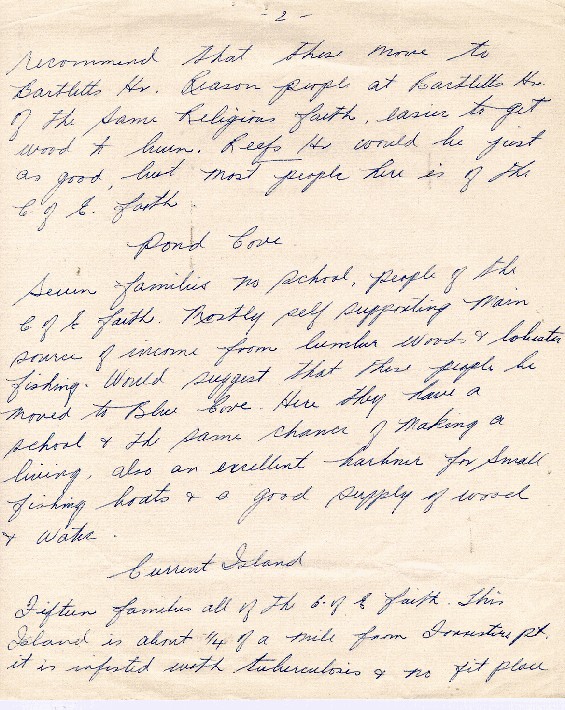 - 2 -
recommend that these move to
Bartletts Hr. Reason people at Bartletts Hr.
of the same Religious faith, easier to get
wood to burn. Reefs Hr would be just
as good, but most people here is of the
C of E. faith
Pond Cove
Seven families no school, people of the
C of E faith. Mostly self supporting Main
source of income from lumber woods & lobster
fishing. Would suggest that these people be
moved to Blue Cove. Here they have a
school & the same chance of making a
living, also an excellent harbour for small
fishing boats & a good supply of wood
& water.
Current Island
Fifteen families all of the C of E faith. This
Island is about 1/4 of a mile from Forresters pt.
it is infested with tuberculosis & no fit place